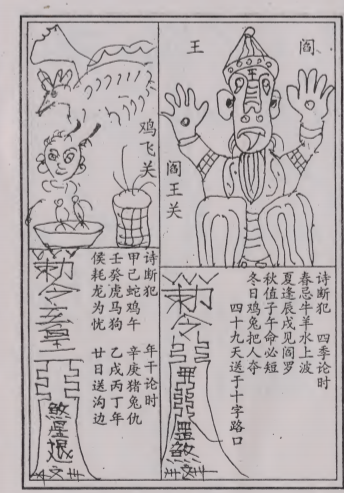 阎王
阎王关
诗断犯　四季论时
春忌牛羊水上波
夏逢辰戌见阎罗
秋值子午命必短
冬日鸡兔把人夺
四十九天送于十字路口
鸡飞关
诗断犯　年干论时
甲己蛇鸡午　辛庚猪兔仇
壬癸虎马狗　乙戊丙丁年
侯耗龙为忧　廿日送沟边
敕令
煞
敕令
煞